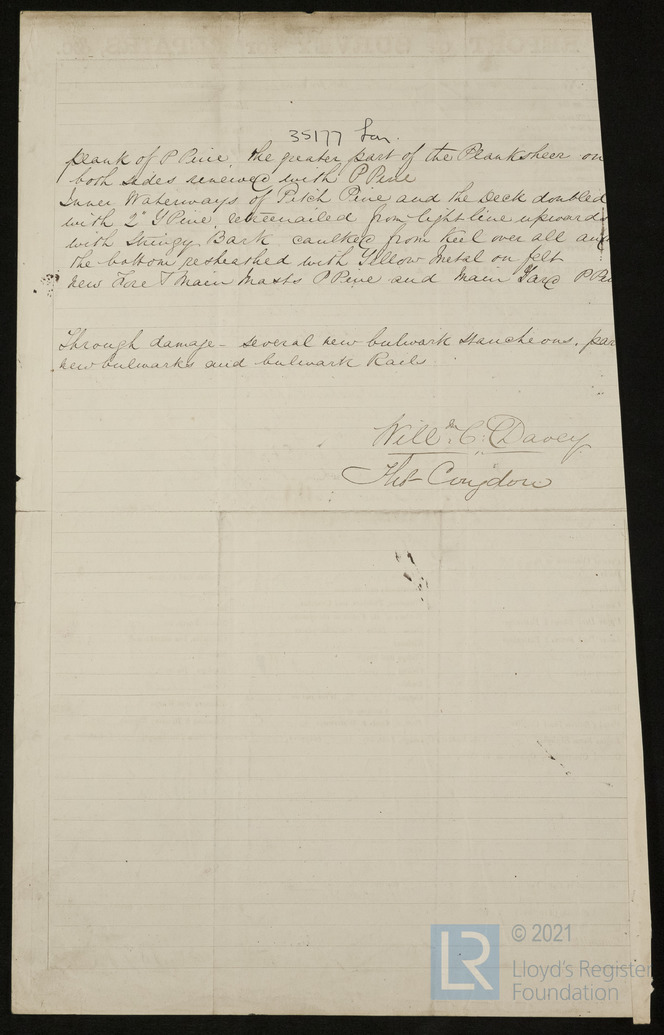 REPORT of SURVEY for REPAIRS, &c.
35177 Lon.
plank of P Pine, the greater part of the Planksheer on
both sides renewed with P Pine
Inner Waterways of Pitch Pine and the Deck doubled
with 2" Y Pine, retreenailed from light line upwards
with Stringy Bark, caulked from Keel over all and
the bottom resheathed with Yellow Metal on felt
New Fore & Main Masts P Pine and Main Yard P Pi
Through damage - several new bulwark stancheons, par
new bulwarks and bulwark Rails
Willm. C. Davey
Thos Congdon
© 2021
LR
Lloyd's Register
Foundation